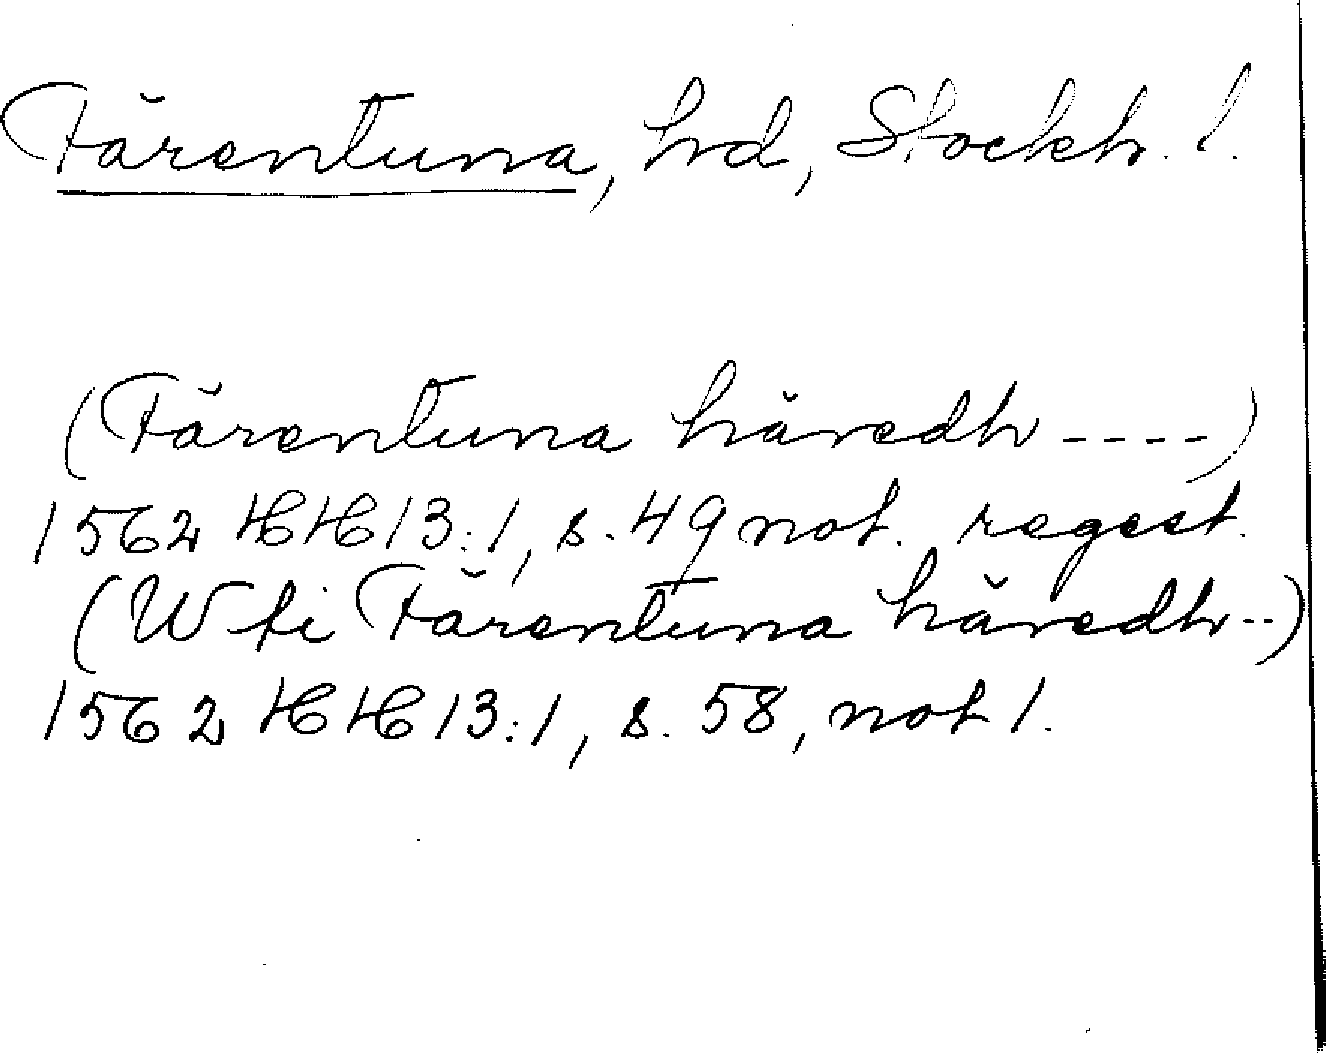 Färentuna, hd, Stockh. l.
(Färentuna häredh ----)
1562 HH 13:1, s. 49 not. regest.
(W ti Färentuna häredh--)
1562 HH 13:1, s. 58, not 1.